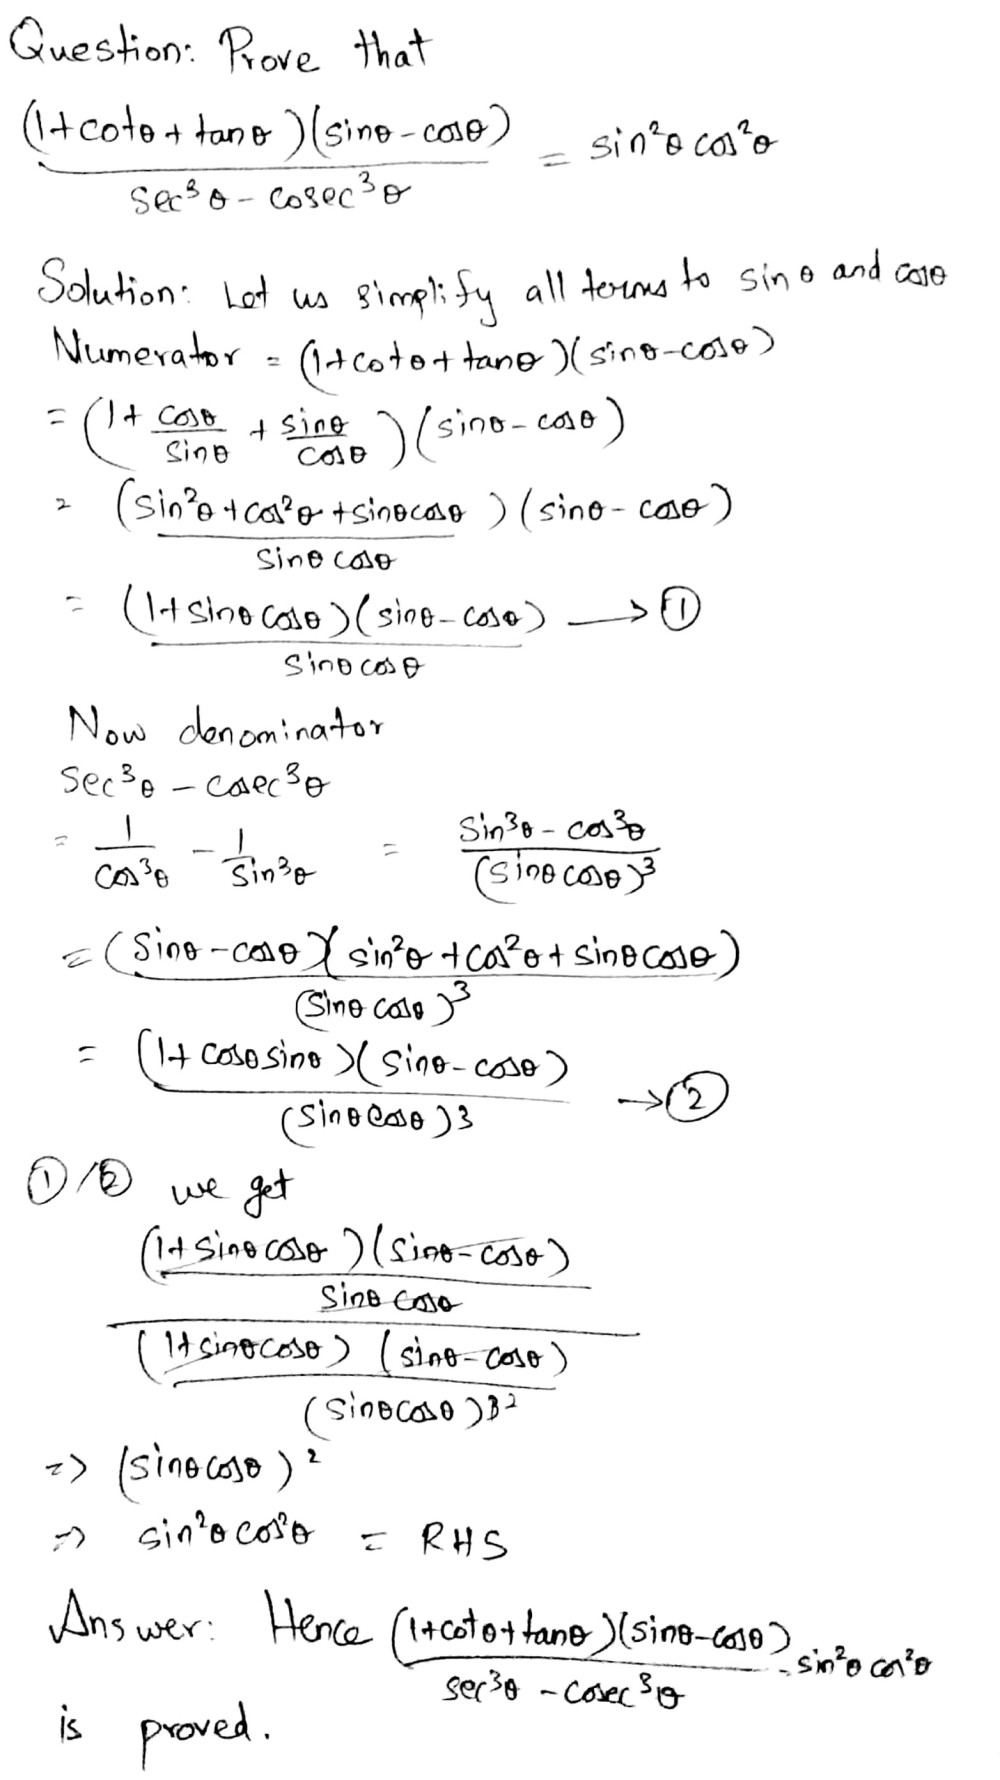 Question: Prove that
(1+cotθ+tanθ)(sinθ-cosθ) / sec³θ-cosec³θ = sin²θcos²θ
Solution: Let us simplify all terms to sinθ and cosθ
Numerator = (1+cotθ+tanθ)(sinθ-cosθ)
= (1+ cosθ/sinθ + sinθ/cosθ)(sinθ-cosθ)
= (sin²θ+cos²θ+sinθcosθ)(sinθ-cosθ) / sinθcosθ
= (1+sinθcosθ)(sinθ-cosθ) / sinθcosθ → ①
Now denominator
sec³θ - cosec³θ
= 1/cos³θ - 1/sin³θ = sin³θ-cos³θ / (sinθcosθ)³
= (sinθ-cosθ)(sin²θ+cos²θ+sinθcosθ) / (sinθcosθ)³
= (1+cosθsinθ)(sinθ-cosθ) / (sinθcosθ)3 → ②
①/② we get
(1+sinθcosθ)(sinθ-cosθ)
sinθcosθ
(1+sinθcosθ) (sinθ-cosθ)
(sinθcosθ)3 2
=> (sinθcosθ)²
=> sin²θcos²θ = RHS
Answer: Hence (1+cotθ+tanθ)(sinθ-cosθ) / sec³θ-cosec³θ = sin²θcos²θ
is proved.